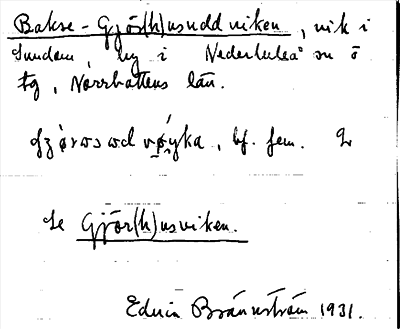 Bakse-Gjör(h)usuddviken, vik i
Sundom, by i Nederluleå sn o
tg, Norrbottens län.
bf. fem.
Se Gjör(h)usviken.
Edvin Brännström 1931.